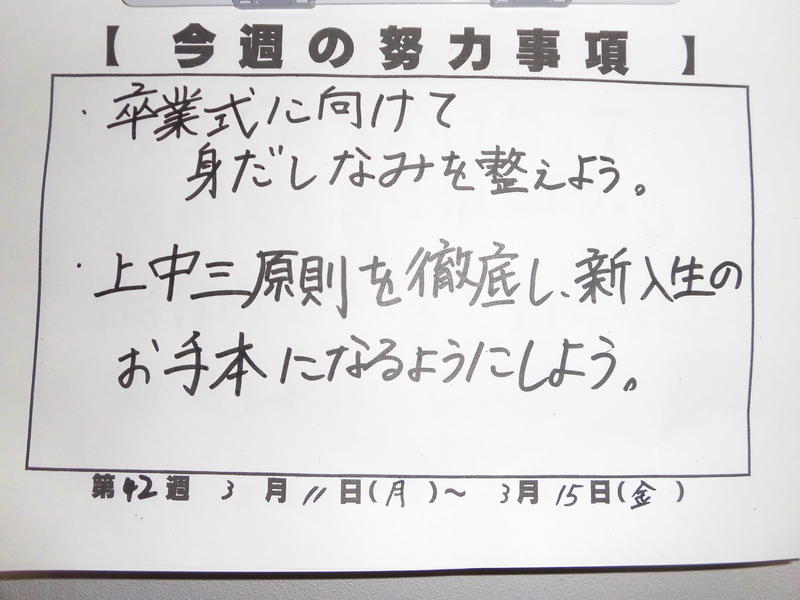 【 今週の努力事項 】
・卒業式に向けて
身だしなみを整えよう。
・上中三原則を徹底し、新入生の
お手本になるようにしよう。
第42週 3月11日(月)～ 3月15日(金)